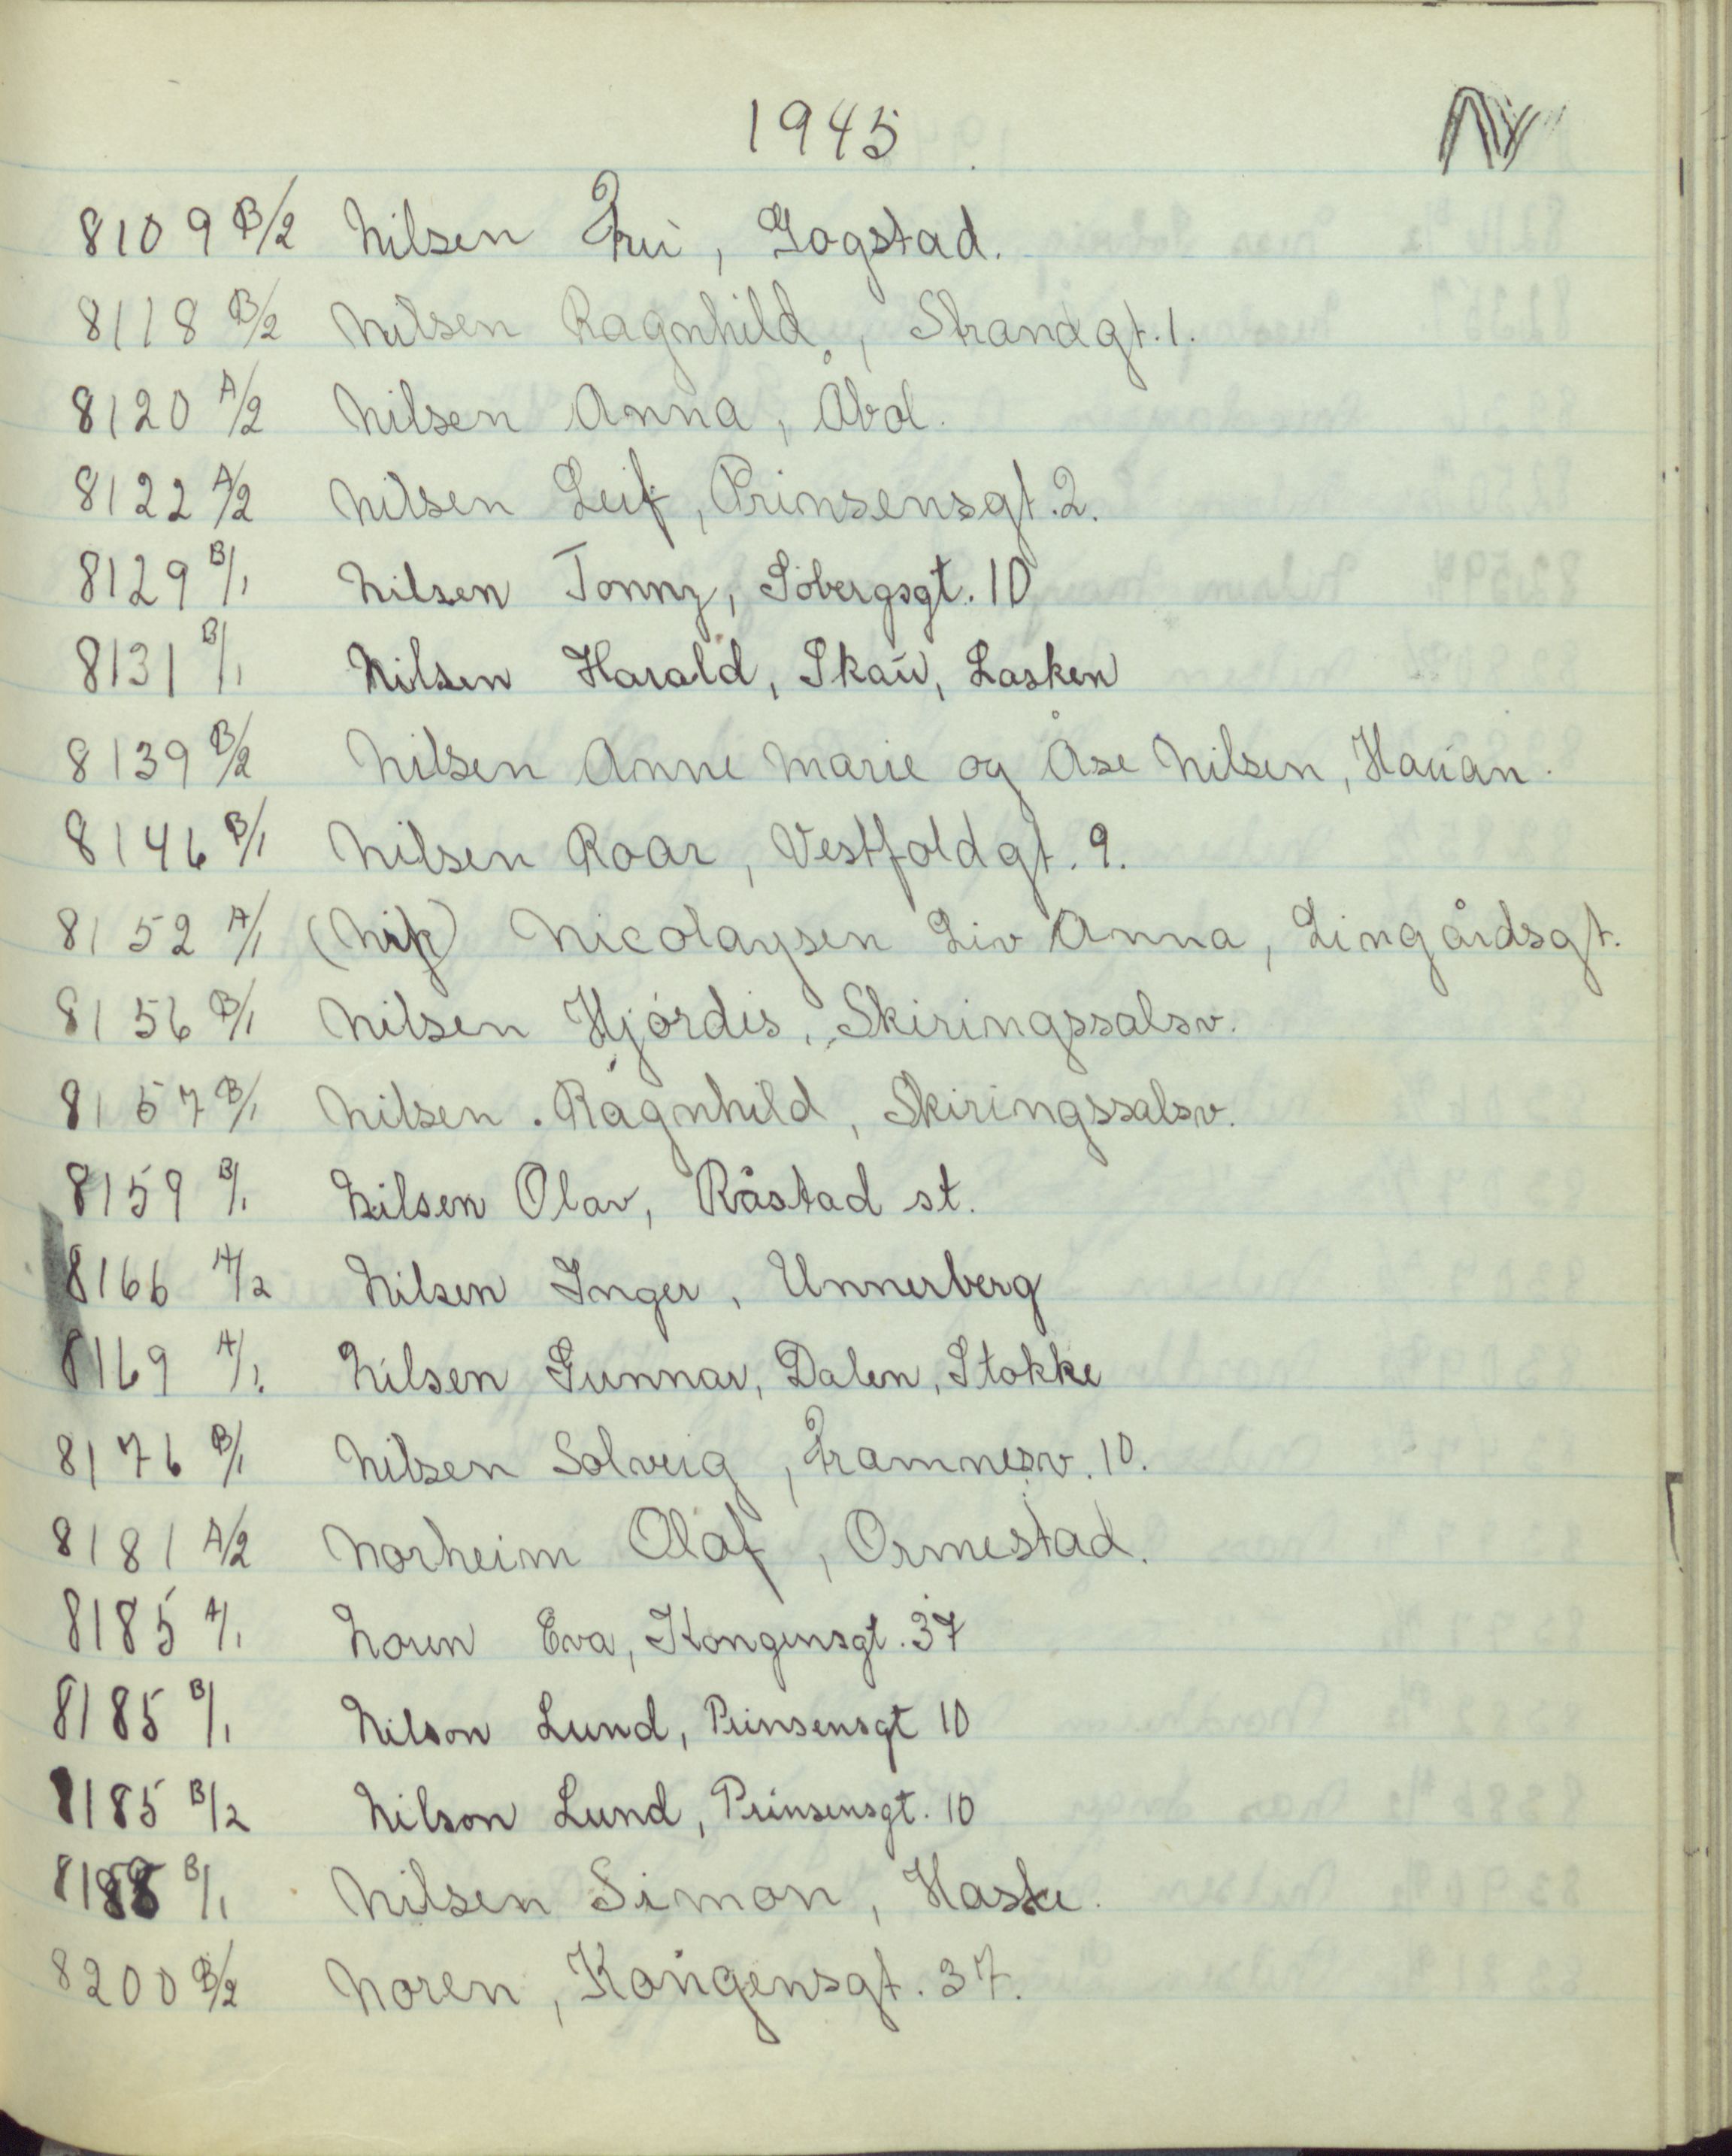 1945
N
8109 B/2 Nilsen Fru, Gogstad.
8118 B/2 Nilsen Ragnhild, Strandgt. 1.
8120 A/2 Nilsen Anna, Åbol.
8122 A/2 Nilsen Leif, Prinsensgt. 2.
8129 B/1 Nilsen Tonny, Søbergsgt. 10
8131 B/1 Nilsen Harald, Skau, Lasken
8139 B/2 Nilsen Anne Marie og Åse Nilsen, Hauan.
8146 B/1 Nilsen Roar, Vestfoldgt. 9.
8152 A/1 (Nik) Nicolaysen Liv Anna, Lingårdsgt.
8156 B/1 Nilsen Hjørdis, Skiringssalsv.
8157 B/1 Nilsen. Ragnhild, Skiringssalsv.
8159 B/1 Nilsen Olav, Råstad st.
8166 A/2 Nilsen Inger, Unnerberg
8169 A/1. Nilsen Gunnar, Dalen, Stokke
8176 B/1 Nilsen Solveig, Framnesv. 10.
8181 A/2 Norheim Olaf, Ormestad.
8185 A/1 Noren Eva, Kongensgt. 37
8185 B/1 Nilson Lund, Prinsensgt 10
8185 B/2 Nilson Lund, Prinsensgt. 10
8188 B/1 Nilsen Simon, Haske.
8200 B/2 Noren, Kongensgt. 37.